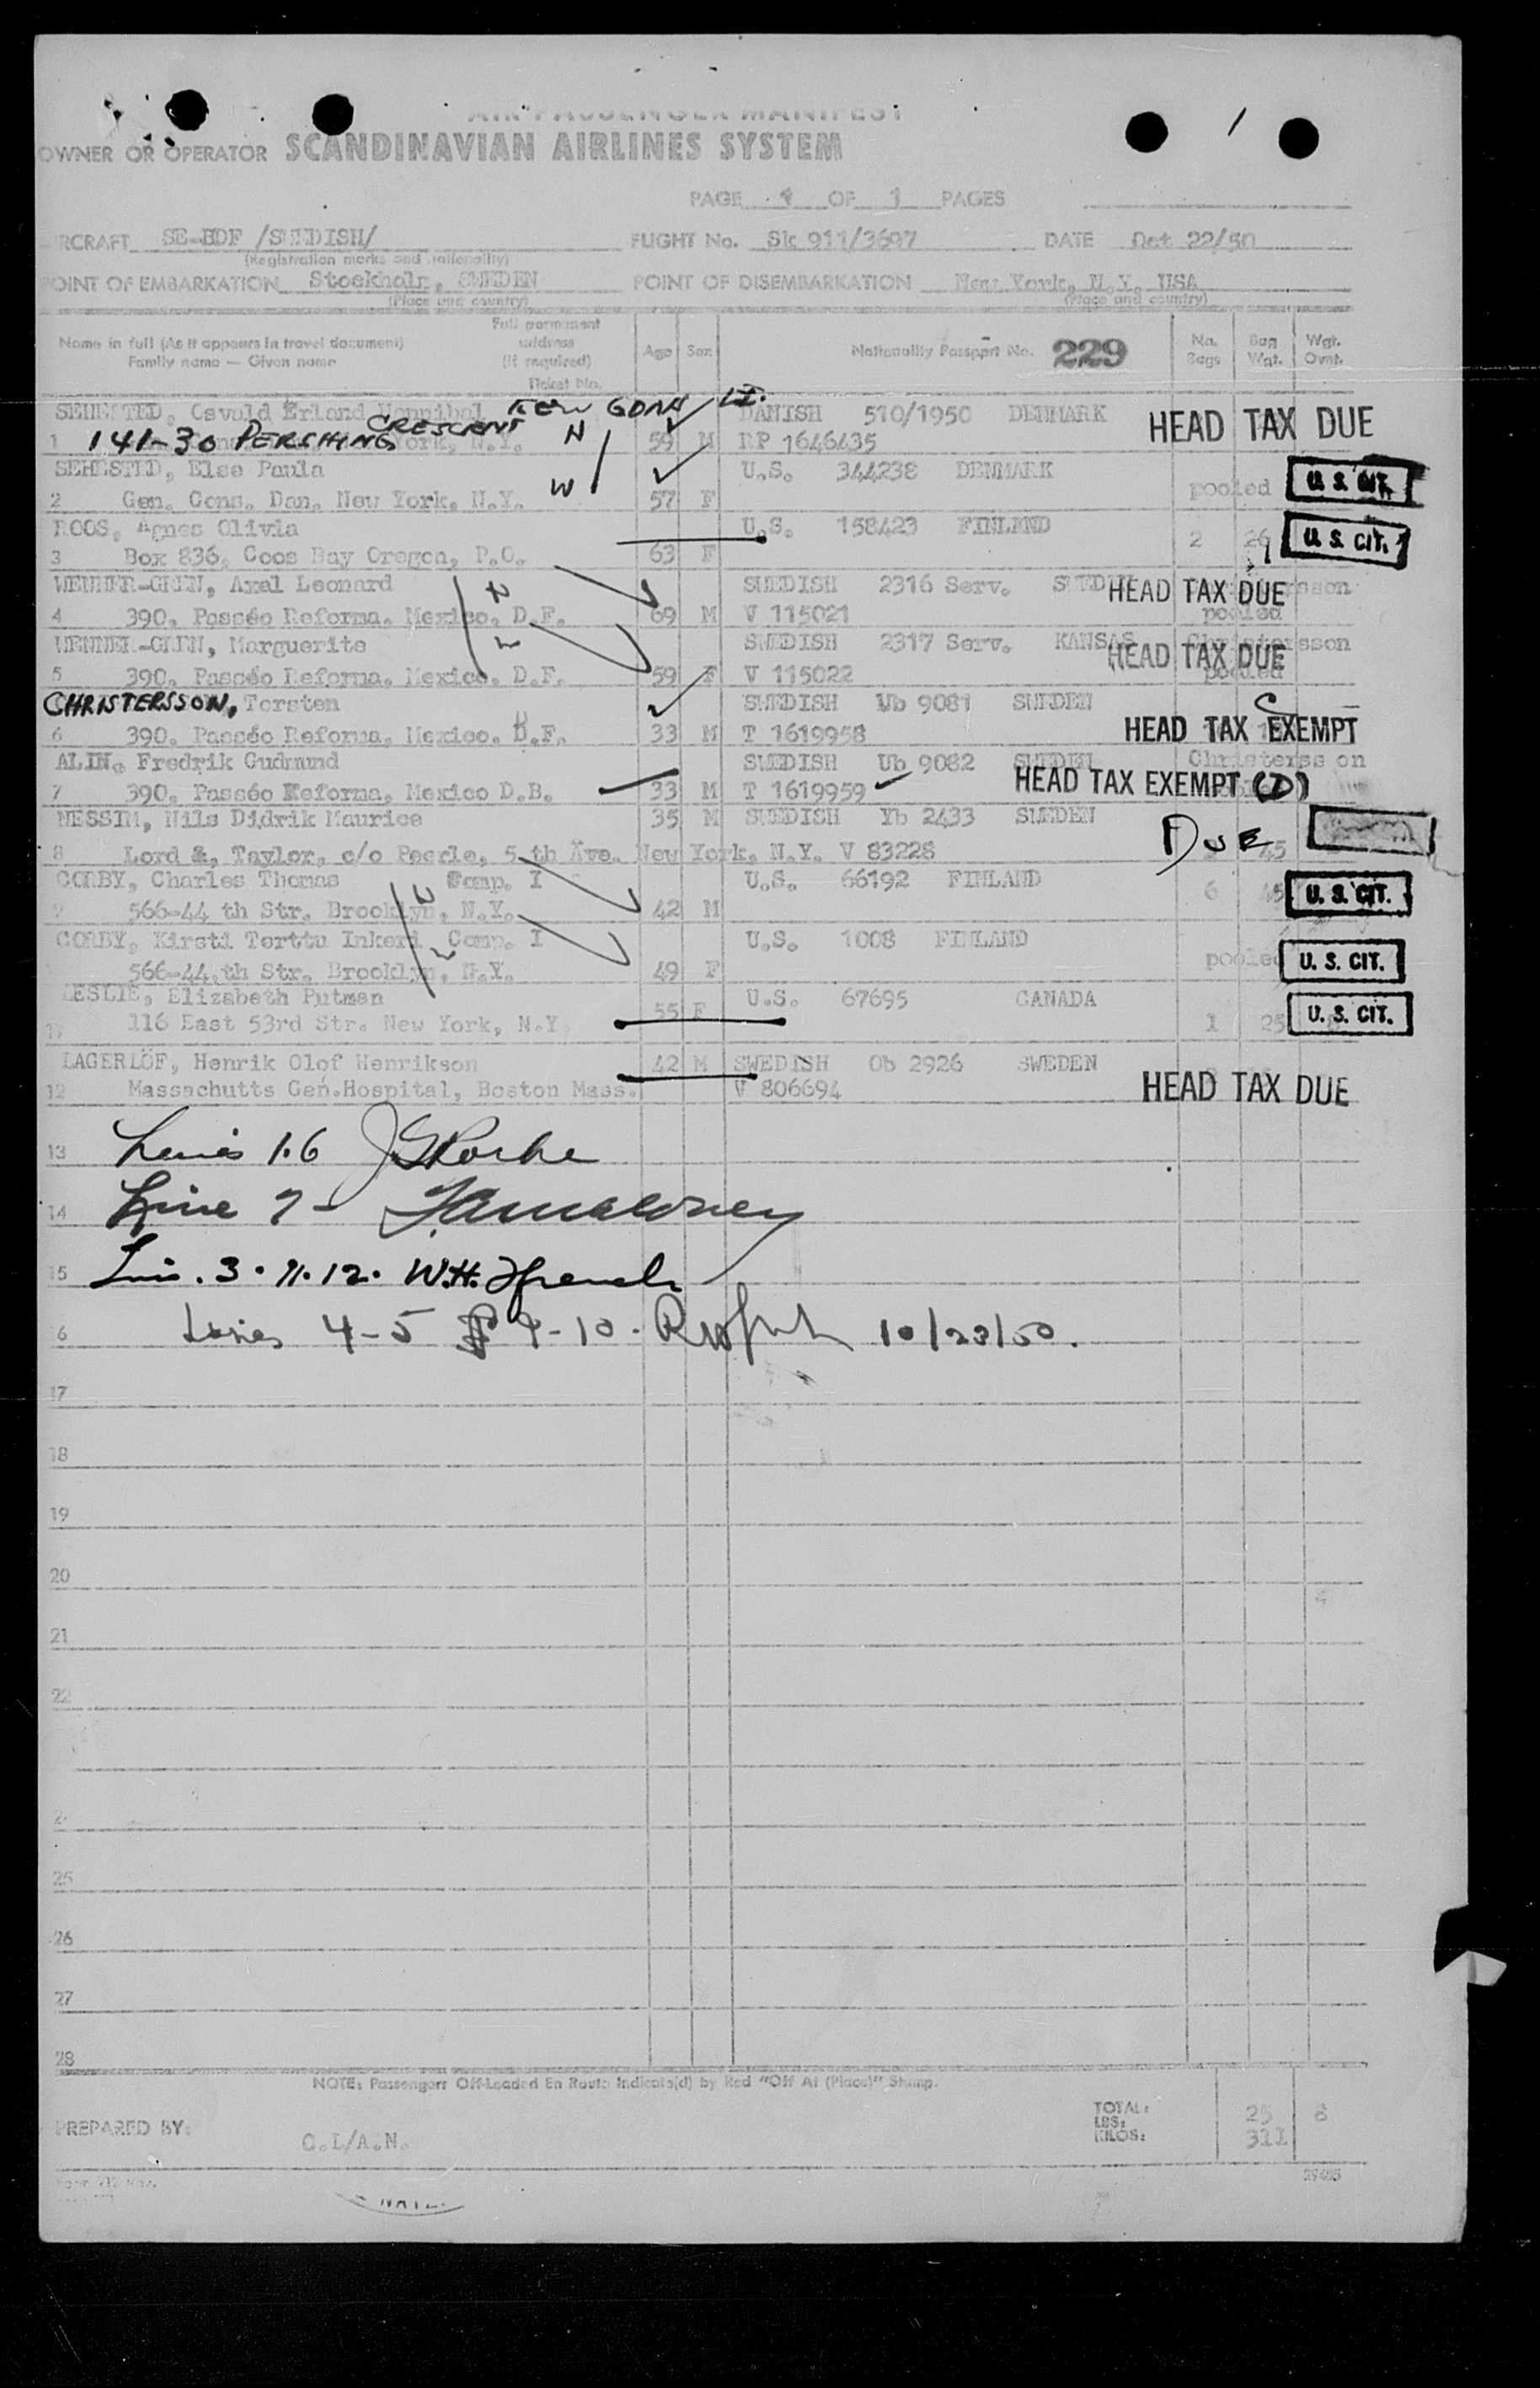 AIR PASSENGER MANIFEST
OWNER OR OPERATOR SCANDINAVIAN AIRLINES SYSTEM
PAGE 1 OF 1 PAGES
AIRCRAFT SE-BDF /SWEDISH/ FLIGHT No. Sk 911/3697 DATE Oct 22/50
(Registration marks and nationality)
POINT OF EMBARKATION Stockholm, SWEDEN POINT OF DISEMBARKATION New York, N.Y. USA
(Place and country) (Place and country)
Name in full (As it appears in travel document) Family name — Given name Full permanent address (if required) Ticket No. Age Sex Nationality Passport No. 229 No. Bags Bag Wgt. Wgt. Ovnt.
SEHESTED, Osvald Erland Hannibal KEW GDNS LI. DANISH 510/1950 DENMARK HEAD TAX DUE
1 141-30 PERSHING CRESCENT York, N.Y. N 59 M RP 1646435
SEHESTED, Else Paula U.S. 344238 DENMARK U.S. CIT.
2 Gen. Cons. Dan. New York, N.Y. W 57 F pooled
ROOS, Agnes Olivia U.S. 158423 FINLAND U.S. CIT.
3 Box 836, Coos Bay Oregon, P.O. 63 F 2 26
WENNER-GREN, Axel Leonard SWEDISH 2316 Serv. SWEDEN HEAD TAX DUE
4 390, Passéo Reforma, Mexico, D.F. 69 M V 115021 pooled
WENNER-GREN, Marguerite SWEDISH 2317 Serv. KANSAS Christersson HEAD TAX DUE
5 390, Passéo Reforma, Mexico, D.F. 59 F V 115022 pooled
CHRISTERSSON, Torsten SWEDISH Ub 9081 SWEDEN
6 390, Passéo Reforma, Mexico, D.F. 33 M T 1619958 HEAD TAX EXEMPT
ALIN, Fredrik Gudmund SWEDISH Ub 9082 SWEDEN Christersson
7 390, Passéo Reforma, Mexico D.B. 33 M T 1619959 HEAD TAX EXEMPT (D)
NESSIM, Nils Didrik Maurice 35 M SWEDISH Yb 2433 SWEDEN DUE
8 Lord &, Taylor, c/o Peecle, 5 th Ave. New York, N.Y. V 83228
CORBY, Charles Thomas Comp. I U.S. 66192 FINLAND 6 U.S. CIT.
9 566-44 th Str. Brooklyn, N.Y. 42 M
CORBY, Kirsti Terttu Inkeri Comp. I U.S. 1008 FINLAND
566-44 th Str. Brooklyn, N.Y. 49 F pooled U. S. CIT.
LESLIE, Elizabeth Putman 55 F U.S. 67695 CANADA U. S. CIT.
11 116 East 53rd Str. New York, N.Y. 1 25
LAGERLÖF, Henrik Olof Henrikson 42 M SWEDISH Ob 2926 SWEDEN
12 Massachutts Gen.Hospital, Boston Mass. V 806694 HEAD TAX DUE
13 Lines 1.6
14 Line 7-
15 Lin. 3. 11. 12. W.H. French
6 Lines 4-5 9-10. 10/23/50.
17
18
19
20
21
22
25
26
27
28
NOTE: Passengers Off-Loaded En Route Indicate(d) by Red "Off At (Place)" Stamp.
PREPARED BY: C.L/A.N.
TOTAL: 25 6
LBS:
KILOS: 311